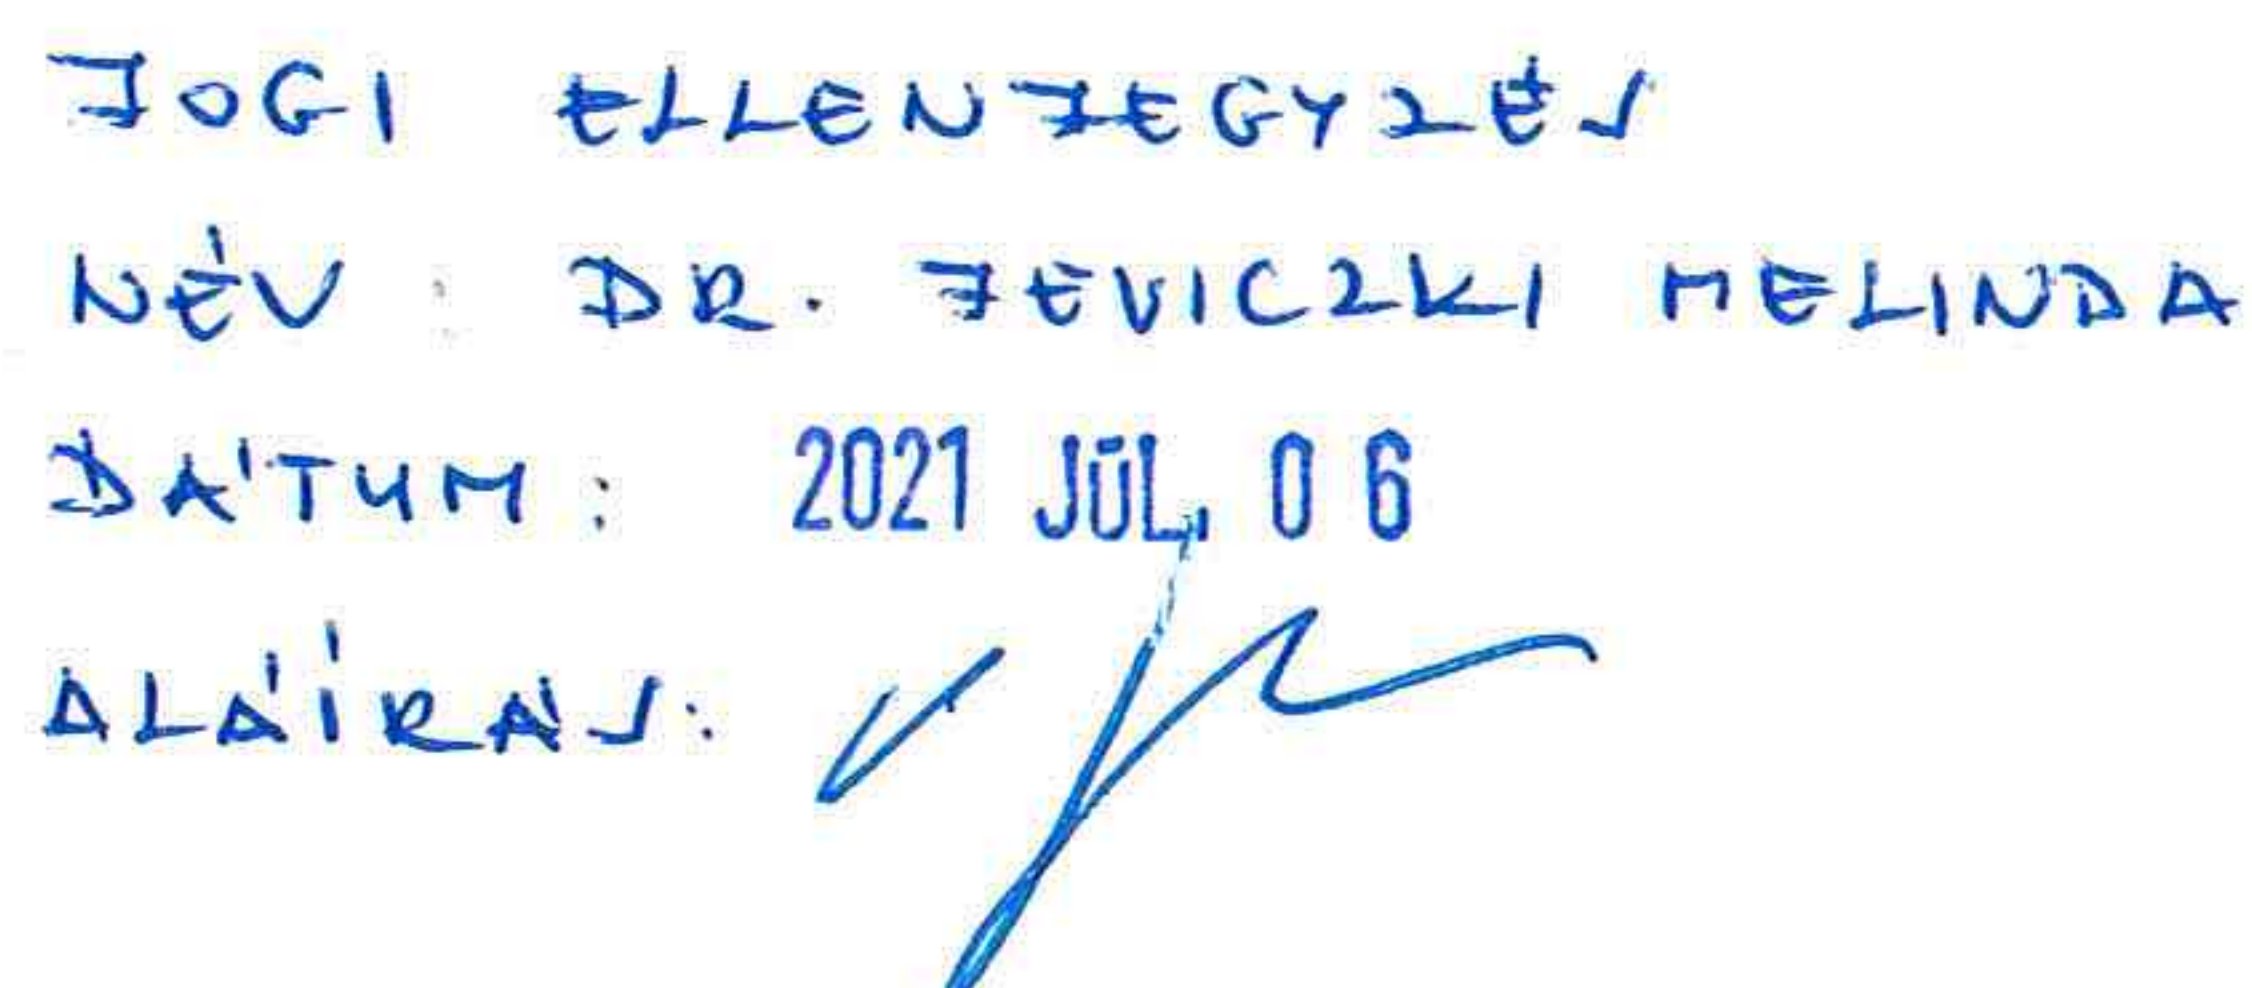 JOGI ELLENJEGYZÉS
NÉV: DR. JEVICZKI MELINDA
DÁTUM: 2021 JÚL. 06
ALÁÍRÁS: